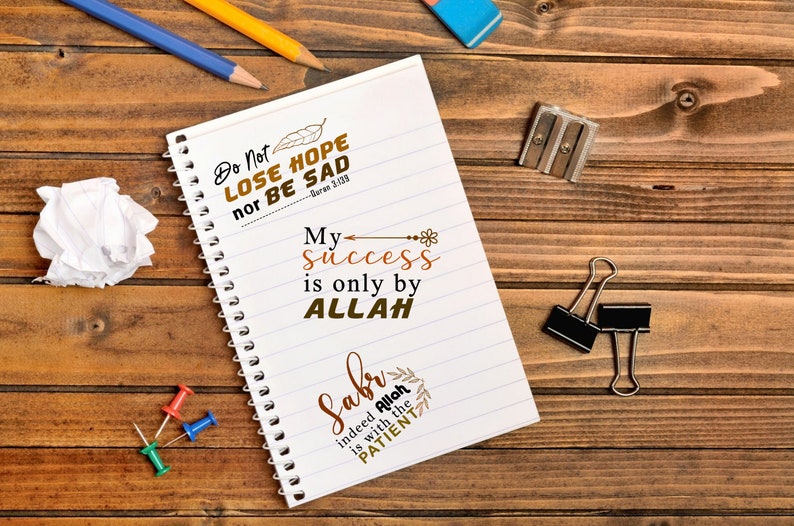 Do Not
LOSE HOPE
nor BE SAD
Quran 3:139
My
success
is only by
ALLAH
Sabr
indeed Allah
is with the
PATIENT